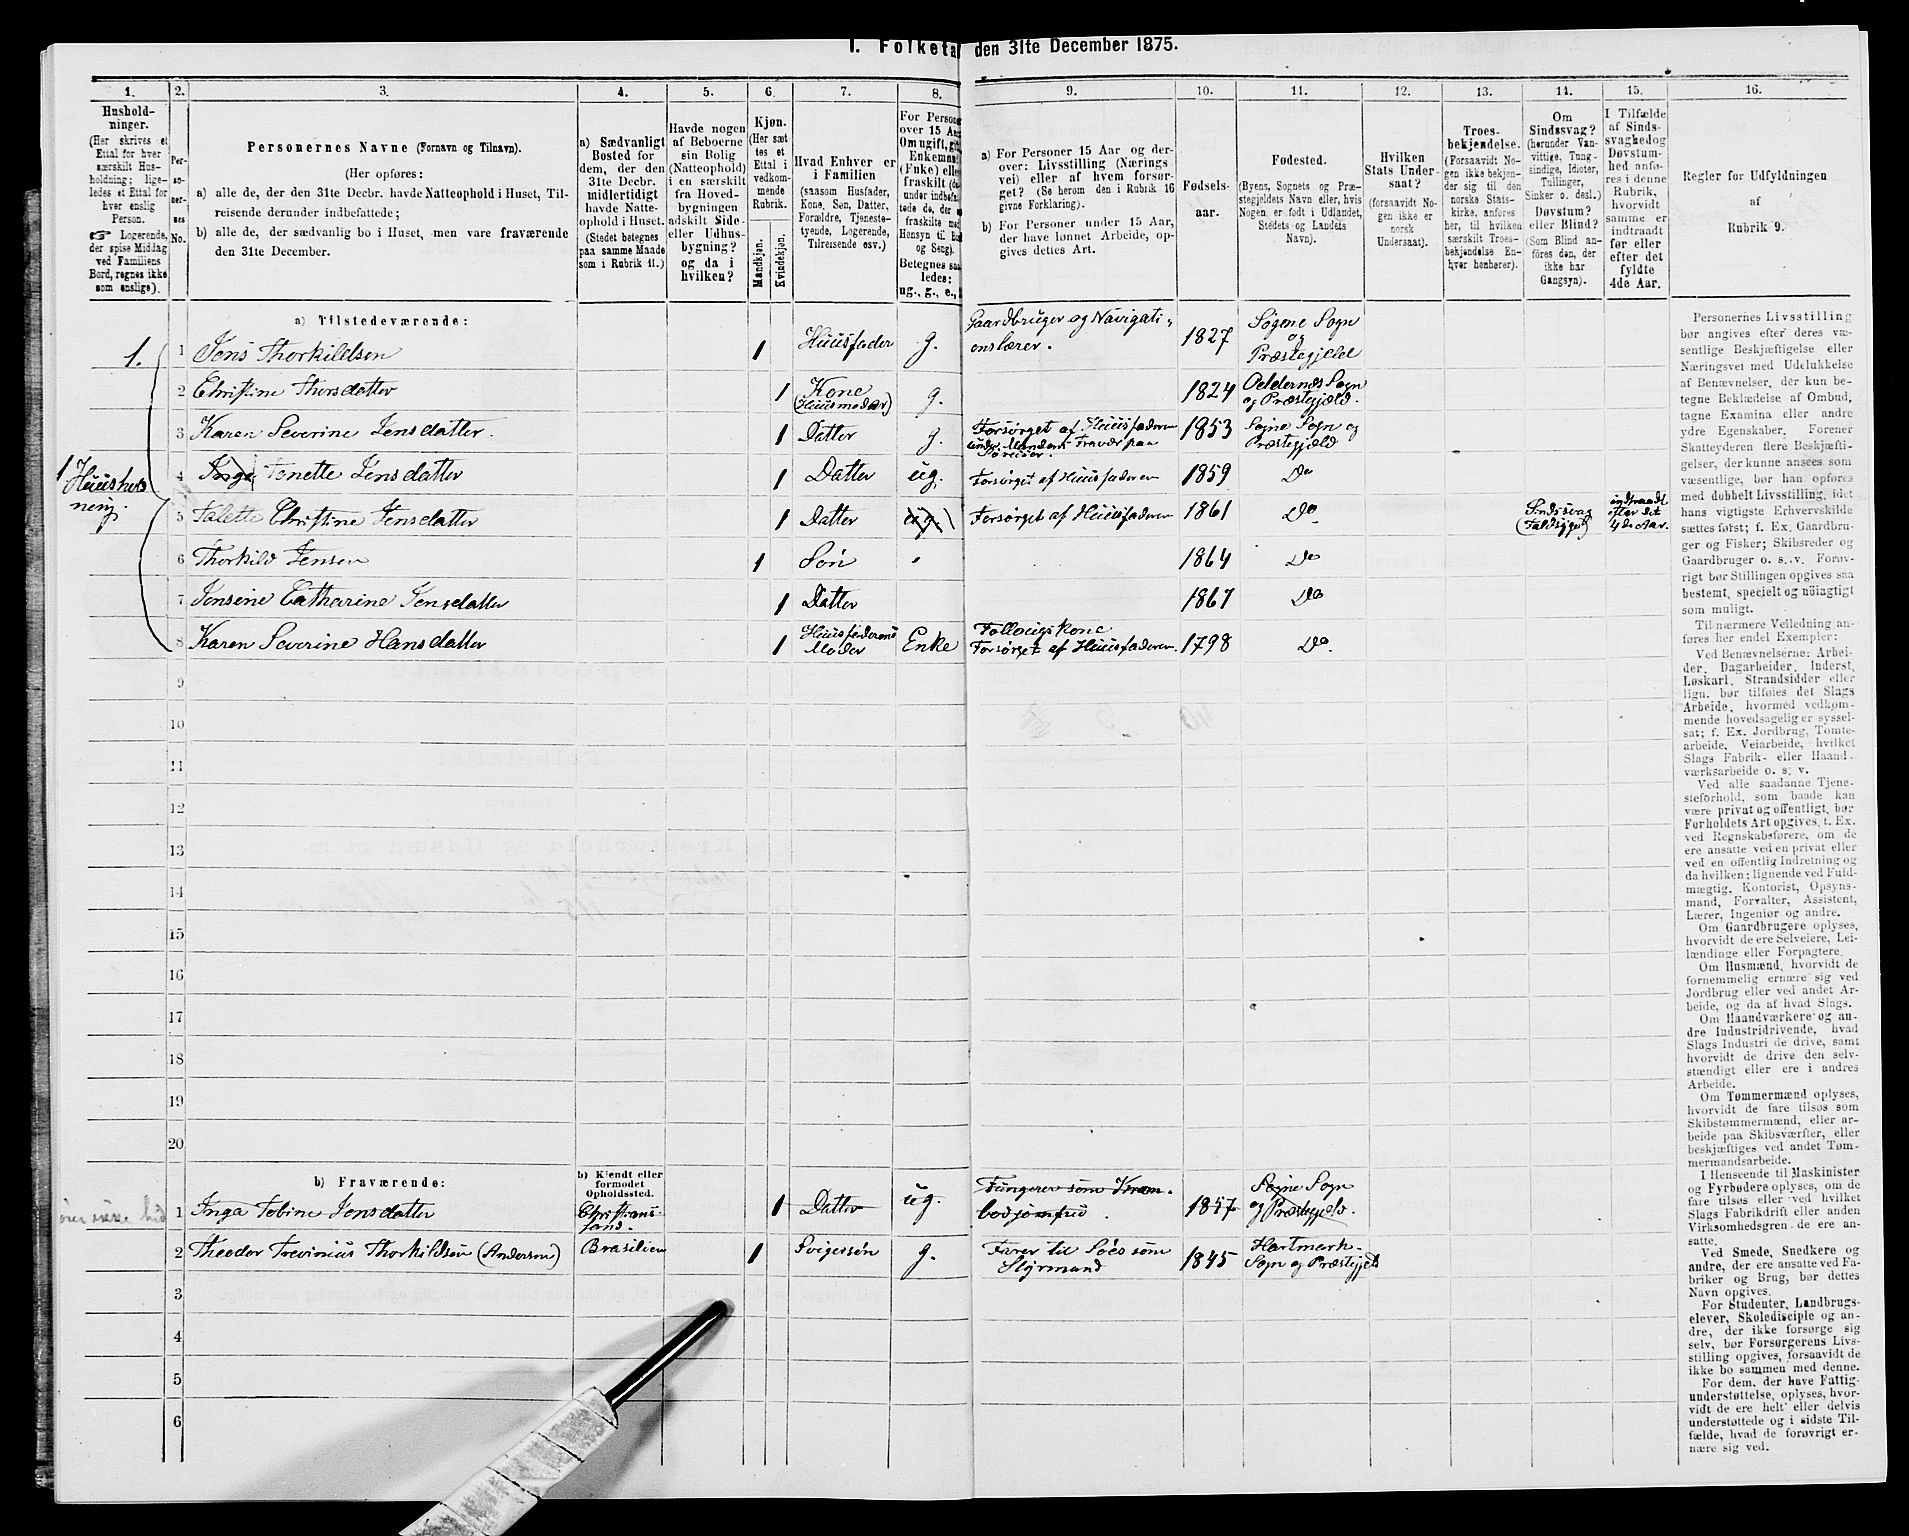 I. Folketal den 31te December 1875.
1. 2. 3. 4. 5. 6. 7. 8. 9. 10. 11. 12. 13. 14. 15. 16.
Hushold-
ninger.
(Her skrives et
Ettal for hver
særskilt Hus-
holdning; lige-
ledes et Ettal for
hver enslig
Person.
☞ Logerende,
der spise Middag
ved Familiens
Bord, regnes ikke
som enslige).
Per-
so-
ner-
nes
No.
Personernes Navne (Fornavn og Tilnavn).
(Her opføres:
a) alle de, der den 31te Decbr. havde Natteophold i Huset, Til-
reisende derunder indbefattede;
b) alle de, der sædvanlig bo i Huset, men vare fraværende
den 31te December.
a) Sædvanligt
Bosted for
dem, der den
31te Decbr.
midlertidigt
havde Natte-
ophold i Huset.
(Stedet betegnes
paa samme Maade
som i Rubrik 11.)
Havde nogen
af Beboerne
sin Bolig
(Natteophold)
i en særskilt
fra Hoved-
bygningen
adskilt Side-
eller Udhus-
bygning?
og da i
hvilken?
Kjøn.
(Her sæt
tes et
Ettal i
vedkom-
mende
Rubrik.
Mandkjøn.
Kvindekjøn.
Hvad Enhver er
i Familien
(saasom Husfader,
Kone, Søn, Datter,
Forældre, Tjeneste-
tyende, Logerende,
Tilreisende osv.)
For Persone
over 15 Aa
Om ugift, gi
Enkeman
(Enke) elle
fraskilt (de
under indbe
tede de, der
fraskilte me
Hensyn til Bo
og Seng).
Betegnes saa
ledes:
ug., g., e.,
a) For Personer 15 Aar og der-
over: Livsstilling (Nærings
vei) eller af hvem forsør-
get? (Se herom den i Rubrik 16
givne Forklaring).
b) For Personer under 15 Aar,
der have lønnet Arbeide, op-
gives dettes Art.
Fødsels-
aar.
Fødested.
(Byens, Sognets og Præ-
stegjeldets Navn eller, hvis
Nogen er født i Udlandet,
Stedets og Landets
Navn).
Hvilken
Stats Under-
saat?
(forsaavidt No-
gen ikke er
norsk
Undersaat).
Troes-
bekjendelse.
(Forsaavidt No-
gen ikke bekjen-
der sig til den
norske Stats-
kirke, anføres
her, til hvilken
særskilt Troes-
bekjendelse En-
hver henhører).
Om
Sindssvag?
(herunder Van-
vittige, Tung-
sindige, Idioter,
Tullinger,
Sinker o. desl.)
Døvstum?
eller Blind?
(Som Blind an-
føres den, der
ikke har
Gangsyn).
I Tilfælde
af Sinds-
svaghedog
Døvstum-
hed anfø-
res i denne
Rubrik,
hvorvidt
samme er
indtraadt
før eller
efter det
fyldte
4de Aar.
Regler for Udfyldningen
af
Rubrik 9.
a) Tilstedeværende:
1. 1 Jens Thorkildsen 1 Huusfader g. Gaardbruger og Navigati-
onslærer. 1827 Søgne Sogn
og
Præstegjeld
2 Christine Thorsdatter 1 Kone
(Huusmoder) g. 1824 Oddernes Sogn
og Præstegjeld.
3 Karen Severine Jensdatter. 1 Datter g. Forsørget af Huusfaderen
under Mandens Fravær paa
Søreiser. 1853 Søgne Sogn og
Præstegjeld
1 Huushold-
ning. 4 Inga Tonette Jensdatter 1 Datter ug. Forsørget af Huusfaderen 1859 Do
5 Talette Christine Jensdatter 1 Datter ug. Forsørget af Huusfaderen 1861 Do Sindssvag
(Faldsyge) indtraadt
efter det
4de Aar.
6 Thorkild Jensen 1 Søn 1864 Do
7 Jensine Catharine Jensdatter 1 Datter 1867 Do
8 Karen Severine Hansdatter 1 Huusfaderens
Moder Enke Føllougskone
Forsørget af Huusfaderen 1798 Do
9
10
11
12
13
14
15
16
17
18
19
20
b) Fraværende:
b) Kjendt eller
formodet
Opholdssted.
1 Inga Tobine Jensdatter Christian-
sand. 1 Datter ug. Fungerer som Kram-
bodjomfru. 1857 Søgne Sogn
og Præstegjeld.
2 Theodor Trevinius Thorkildsen (Andersen) Brasilien 1 Svigersøn g. Farer til Søes som
Styrmand 1845 Hartmark
Sogn og Præstegjeld
3
4
5
6
Personernes Livsstilling
bør angives efter deres væ-
sentlige Beskjæftigelse eller
Næringsvei med Udelukkelse
af Benævnelser, der kun be-
tegne Beklædelse af Ombud,
tagne Examina eller andre
ydre Egenskaber. Forener
Skatteyderen flere Beskjæfti-
gelser, der kunne ansees som
væsentlige, bør han opføres
med dobbelt Livsstilling, idet
hans vigtigste Erhvervskilde
sættes først; f. Ex. Gaardbru-
ger og Fisker; Skibsreder og
Gaardbruger o. s. v. Forøv-
rigt bør Stillingen opgives saa
bestemt, specielt og nöiagtigt
som muligt.
Til nærmere Veiledning an-
føres her endel Exempler:
Ved Benævnelserne: Arbei-
der, Dagarbeider, Inderst,
Løskarl, Strandsidder eller
lign. bør tilføies det Slags
Arbeide, hvormed vedkom-
mende hovedsagelig er syssel-
sat; f. Ex. Jordbrug, Tomte-
arbeide, Veiarbeide, hvilket
Slags Fabrik- eller Haand-
værksarbeide o. s. v.
Ved alle saadanne Tjene-
steforhold, som baade kan
være privat og offentligt, bør
Forholdets Art opgives, t. Ex.
ved Regnskabsførere, om de
ere ansatte ved en privat eller
ved en offentlig Indretning og
da hvilken; lignende ved Fuld-
mægtig, Kontorist, Opsyns-
mand, Forvalter, Assistent,
Lærer, Ingeniør og andre.
Om Gaardbrugere oplyses,
hvorvidt de ere Selveiere, Lei-
lændinge eller Forpagtere.
Om Husmænd, hvorvidt de
fornemmelig ernære sig ved
Jordbrug eller ved andet Ar-
beide, og da af hvad Slags.
Om Haandværkere og an-
dre Industridrivende, hvad
Slags Industri de drive, samt
hvorvidt de drive den selv-
stændigt eller ere i andres
Arbeide.
Om Tømmermænd oplyses,
hvorvidt de fare tilsøs som
Skibstømmermænd, eller ar-
beide paa Skibsværfter, eller
beskjæftiges ved andet Tøm-
mermandsarbeide.
I Henseende til Maskinister
og Fyrbødere oplyses, om de
fare tilsøs eller ved hvilket
Slags Fabrikdrift eller anden
Virksomhedsgren de ere an-
satte.
Ved Smede, Snedkere og
andre, der ere ansatte ved Fa-
briker og Brug, bør dettes
Navn opgives.
For Studenter, Landbrugs-
elever, Skoledisciple og an-
dre, der ikke forsørge sig
selv, bør Forsørgerens Livs-
stilling opgives, forsaavidt de
ikke bo sammen med denne.
For dem, der have Fattig-
understøttelse, oplyses, hvor-
vidt de ere helt eller delvis
understøttede og i sidste Til-
fælde, hvad de forøvrigt er-
nære sig ved.